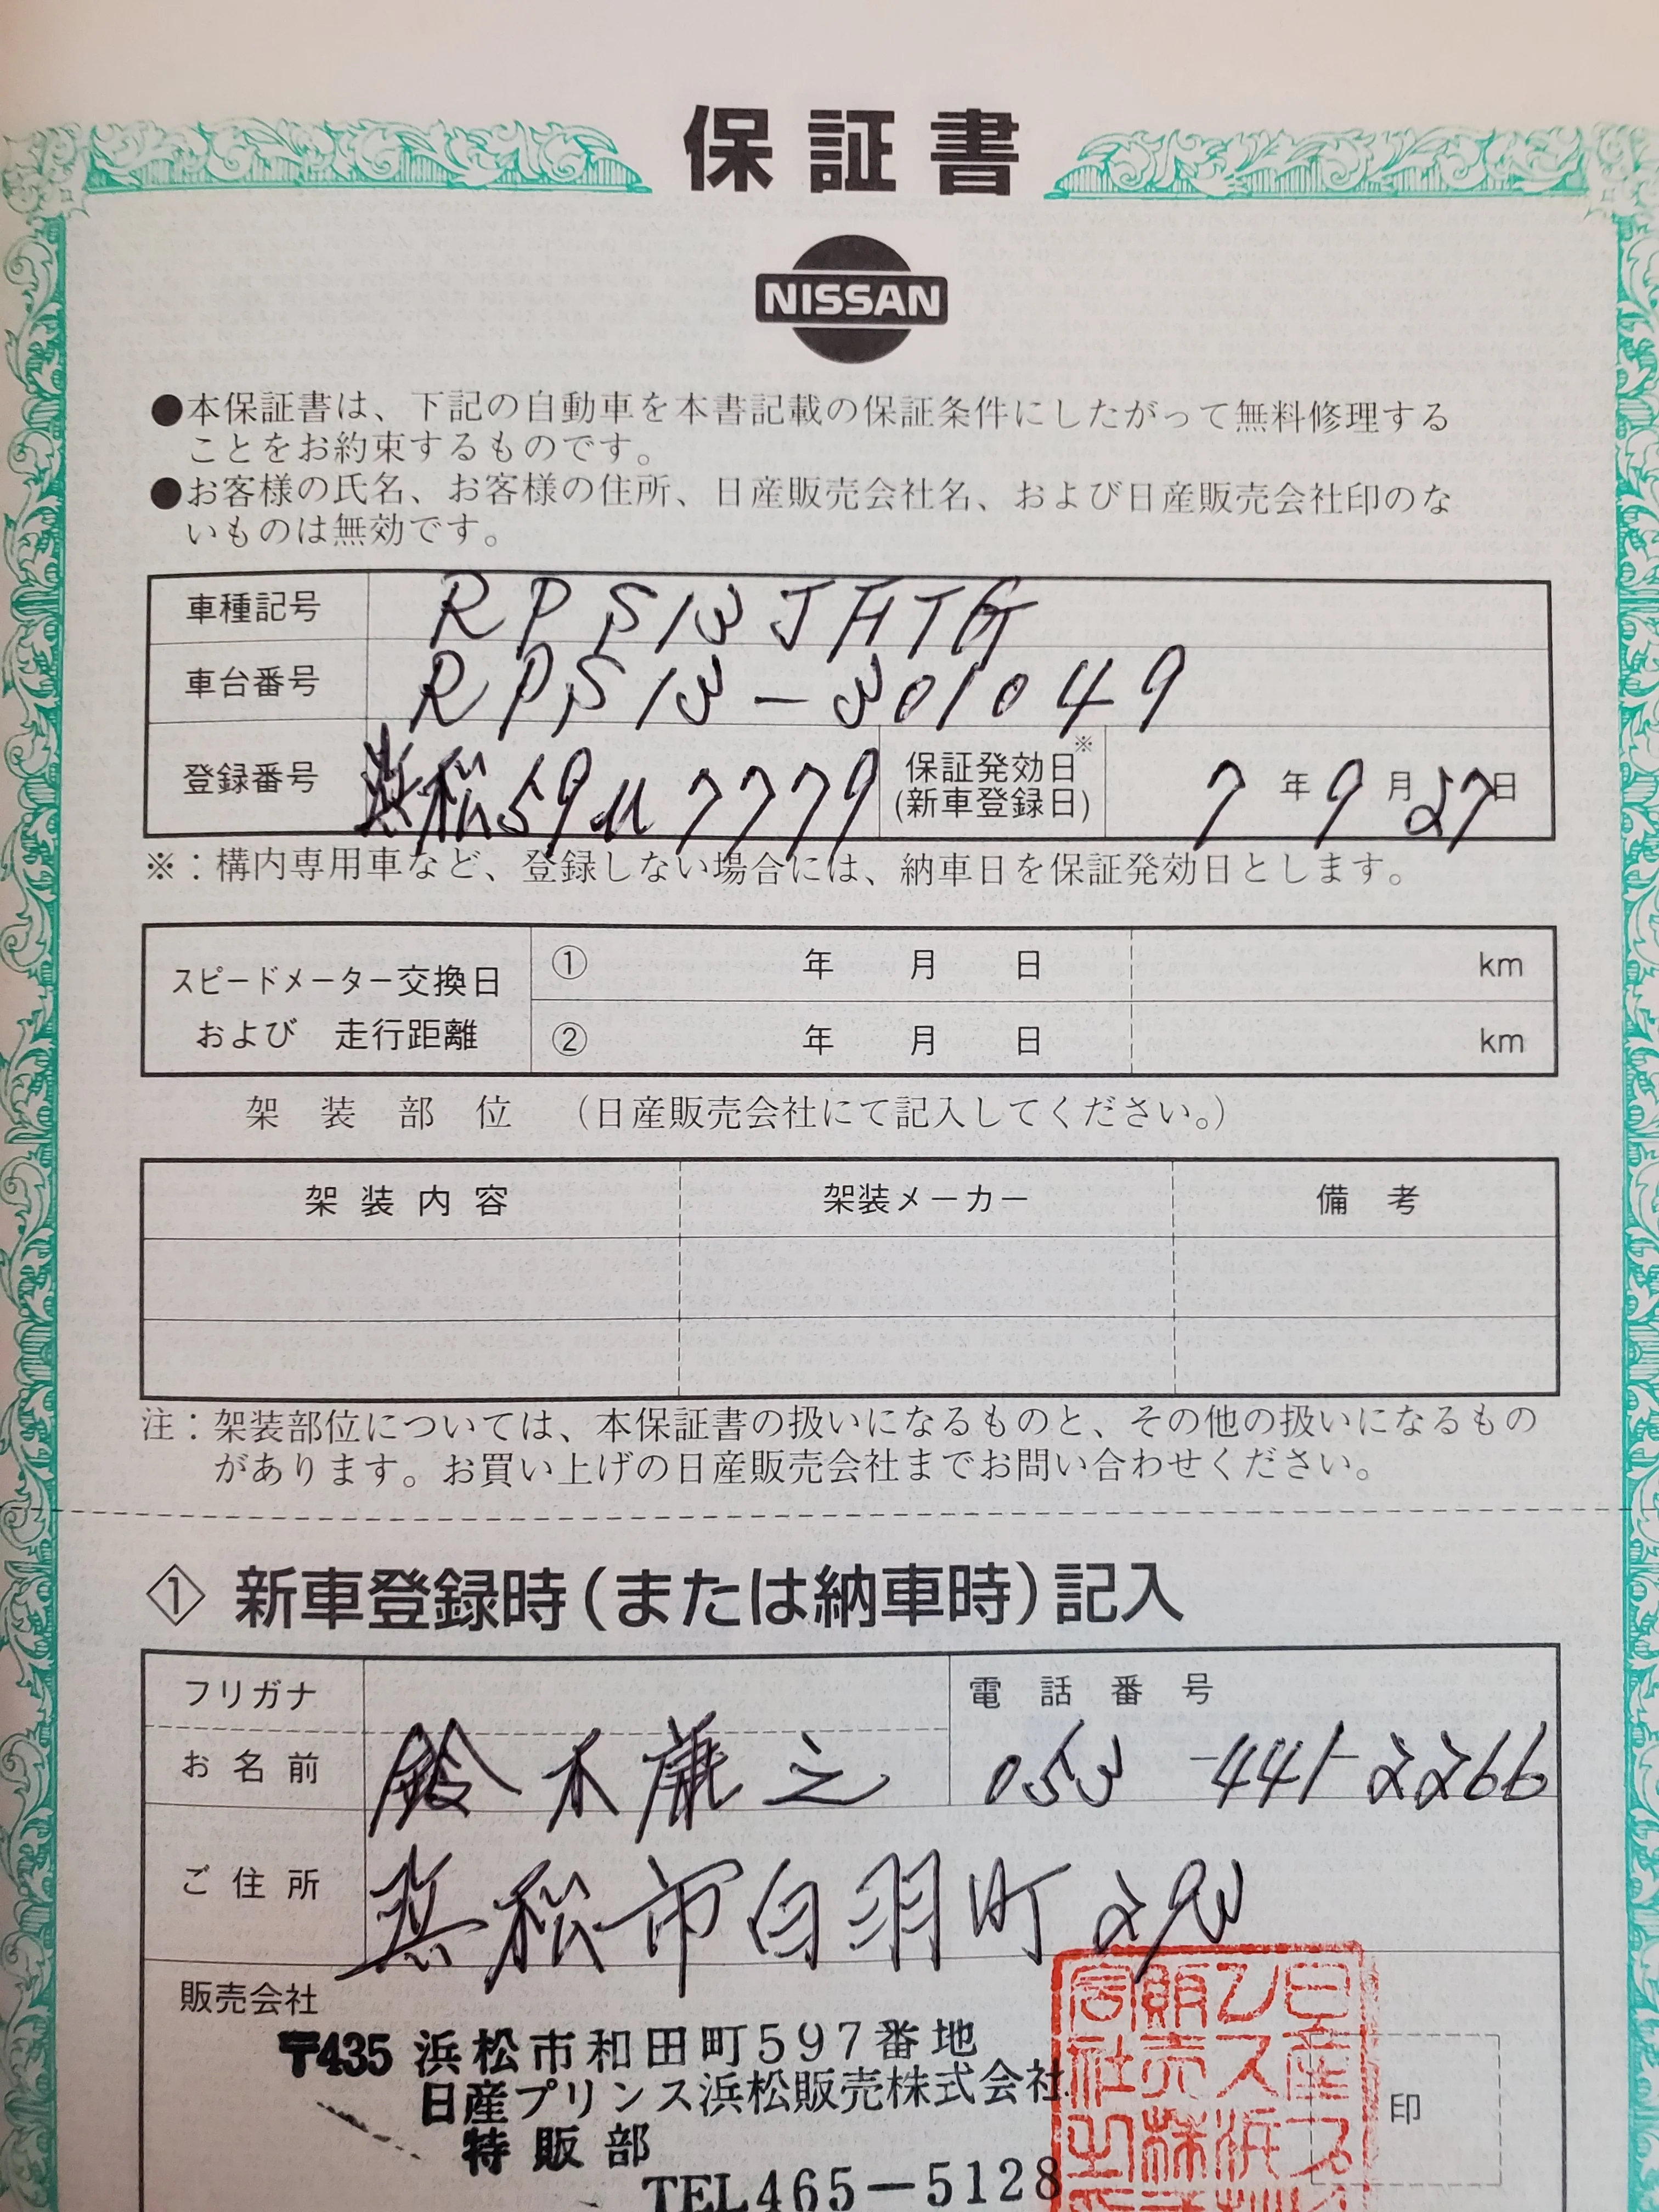 保証書
NISSAN
●本保証書は、下記の自動車を本書記載の保証条件にしたがって無料修理する
ことをお約束するものです。
●お客様の氏名、お客様の住所、日産販売会社名、および日産販売会社印のな
いものは無効です。
車種記号 RPS13JHTG
車台番号 RPS13-301049
登録番号 浜松59 7779 保証発効日※ (新車登録日) 7年9月27日
※：構内専用車など、登録しない場合には、納車日を保証発効日とします。
スピードメーター交換日
および 走行距離
① 年 月 日 km
② 年 月 日 km
架装部位 （日産販売会社にて記入してください。）
架装内容 架装メーカー 備考
注：架装部位については、本保証書の扱いになるものと、その他の扱いになるもの
があります。お買い上げの日産販売会社までお問い合わせください。
① 新車登録時（または納車時）記入
フリガナ 電話番号
お名前 鈴木 之 053-441-2266
ご住所 浜松市白羽町293
販売会社
〒435 浜松市和田町597番地
日産プリンス浜松販売株式会社
特販部
TEL465-5128
印